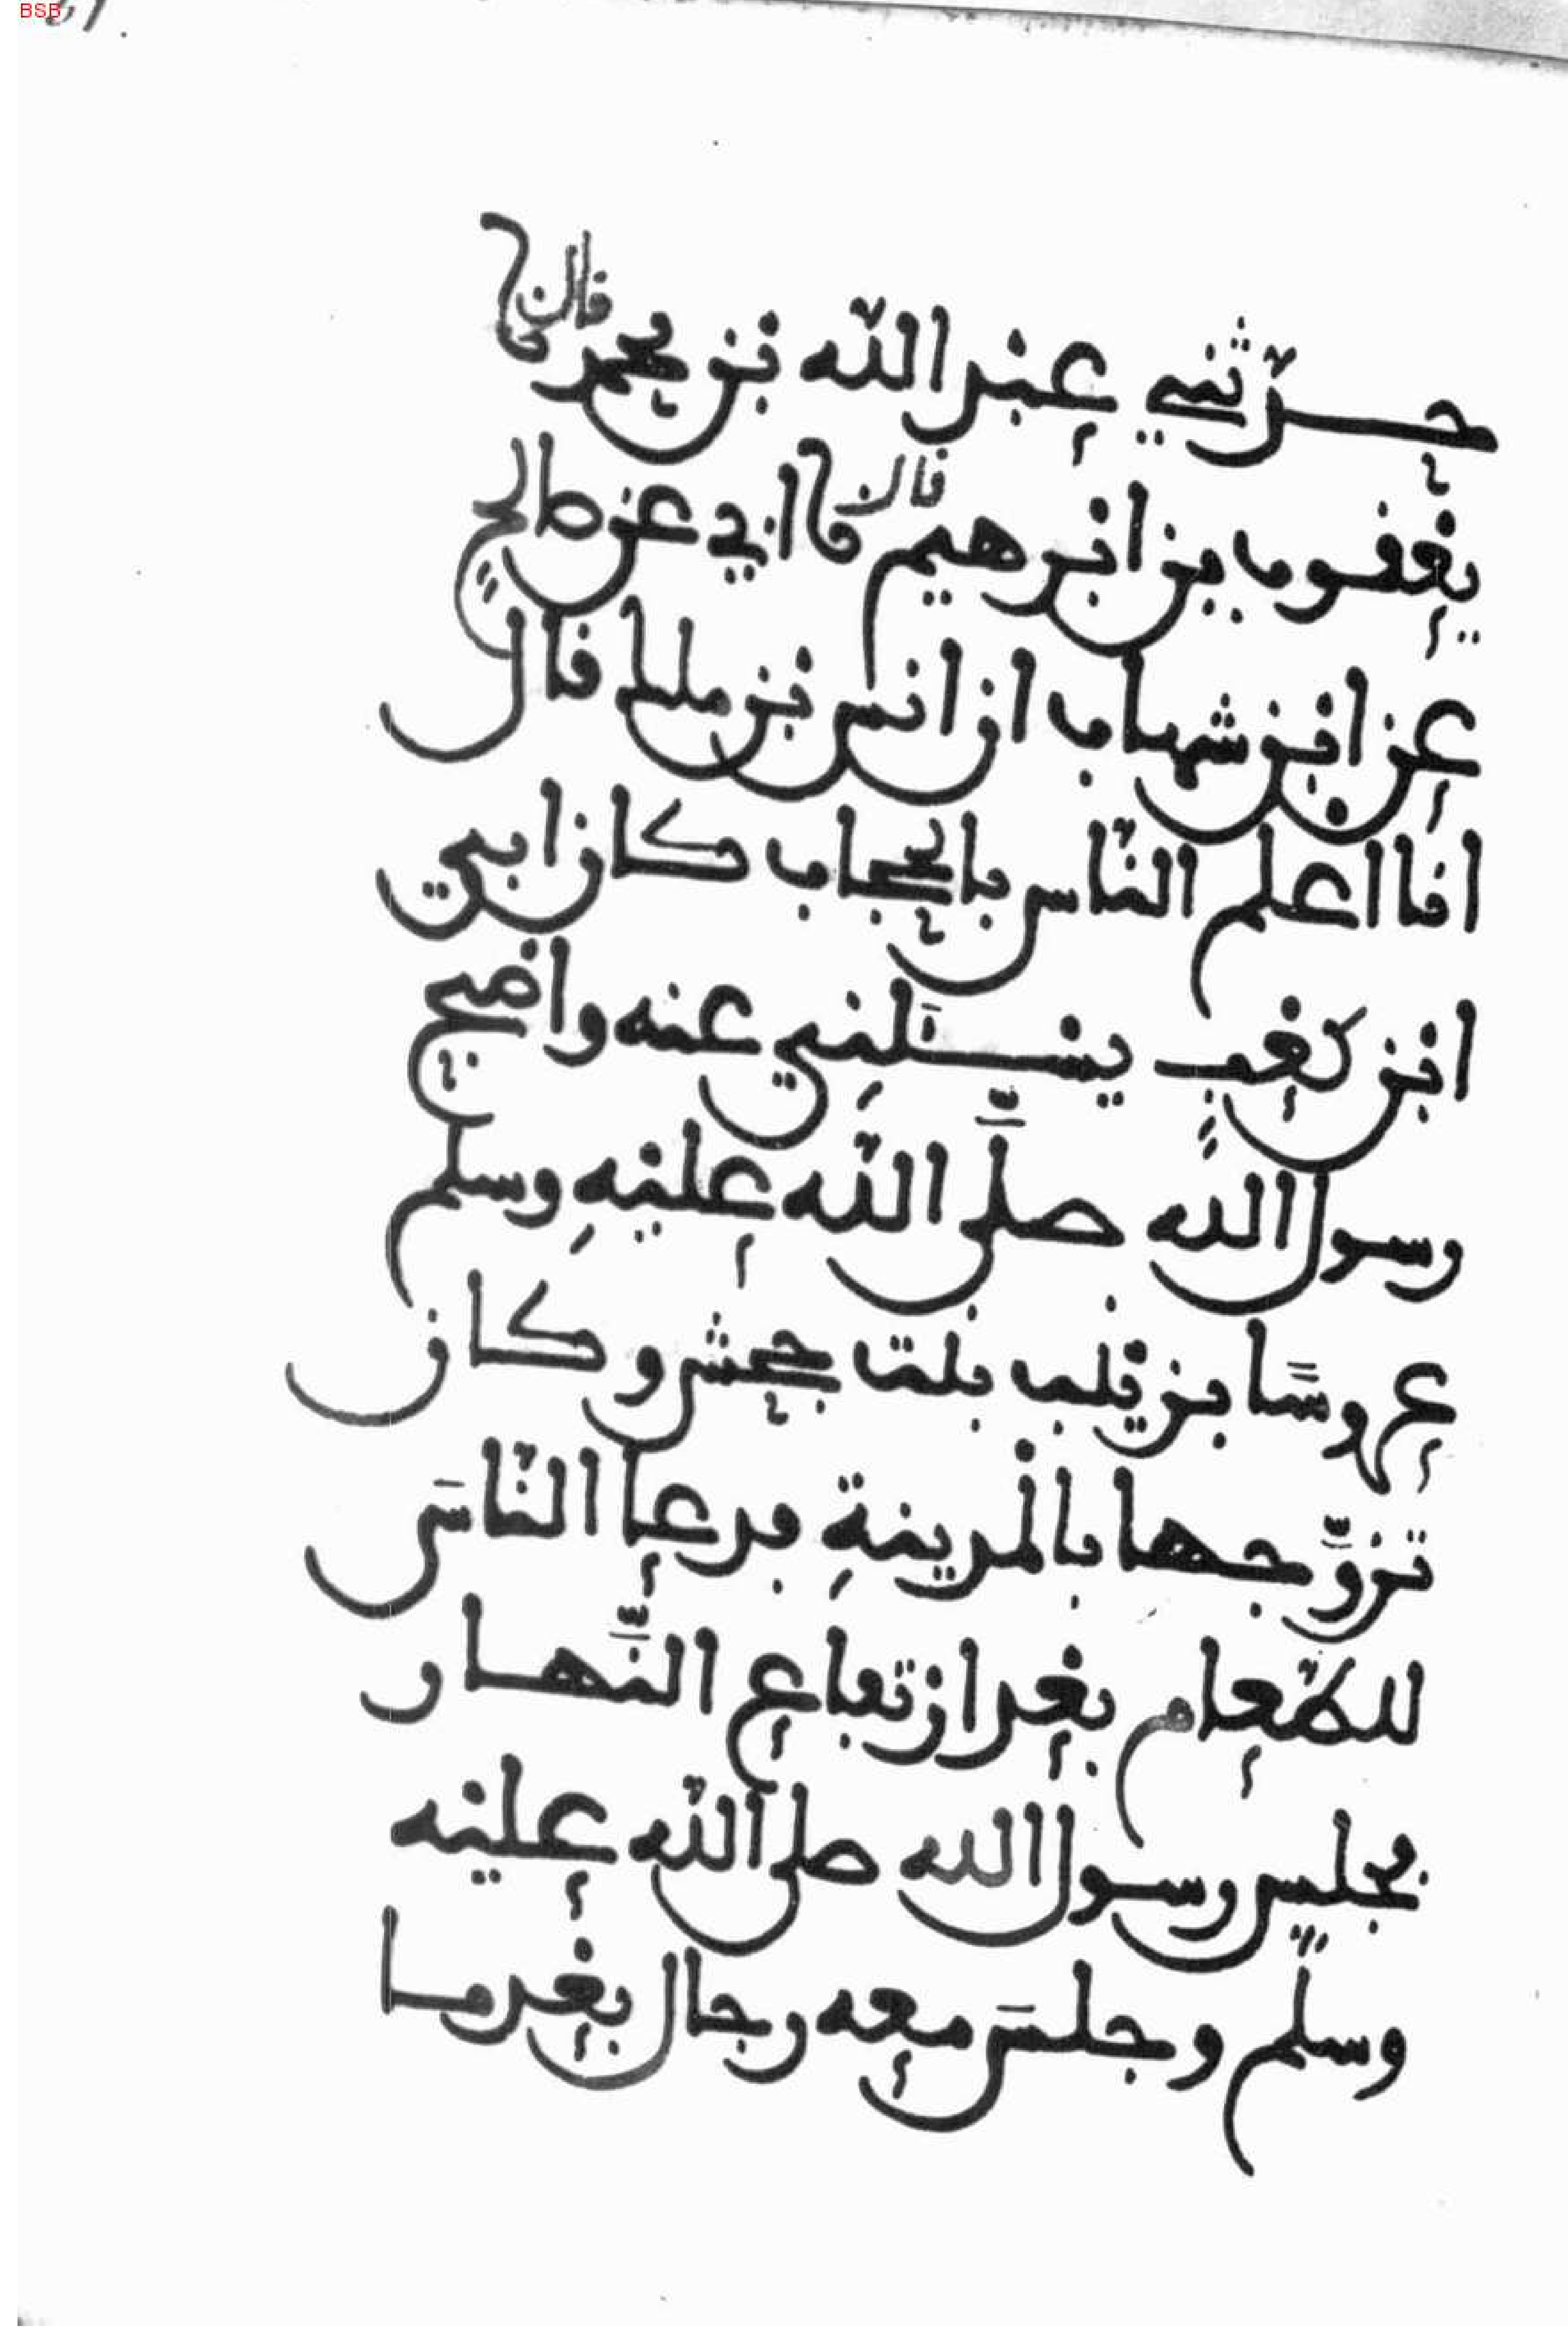 BSB
حدّثني عبد اللّه بن محمد قال نا
يعقوب بن ابرهيم قال نا ابي عن صالح
عن ابن شهاب ان انس بن ملك قال
انا اعلم النّاس بالحجاب كان ابي
ابن كعبٍ يسئَلني عنه واصبح
رسول الله صلَّى اللّه عليهِ وسلم
عروسًا بزينب بنت جحش وكان
تزوَّجها بالمْدينةِ فدعا النّاسَ
للطّعام بعد ارتفاع النَّهار
فجلس رسول الله صلى اللّه عليه
وسلم وجلسَ معه رجال بعد ما